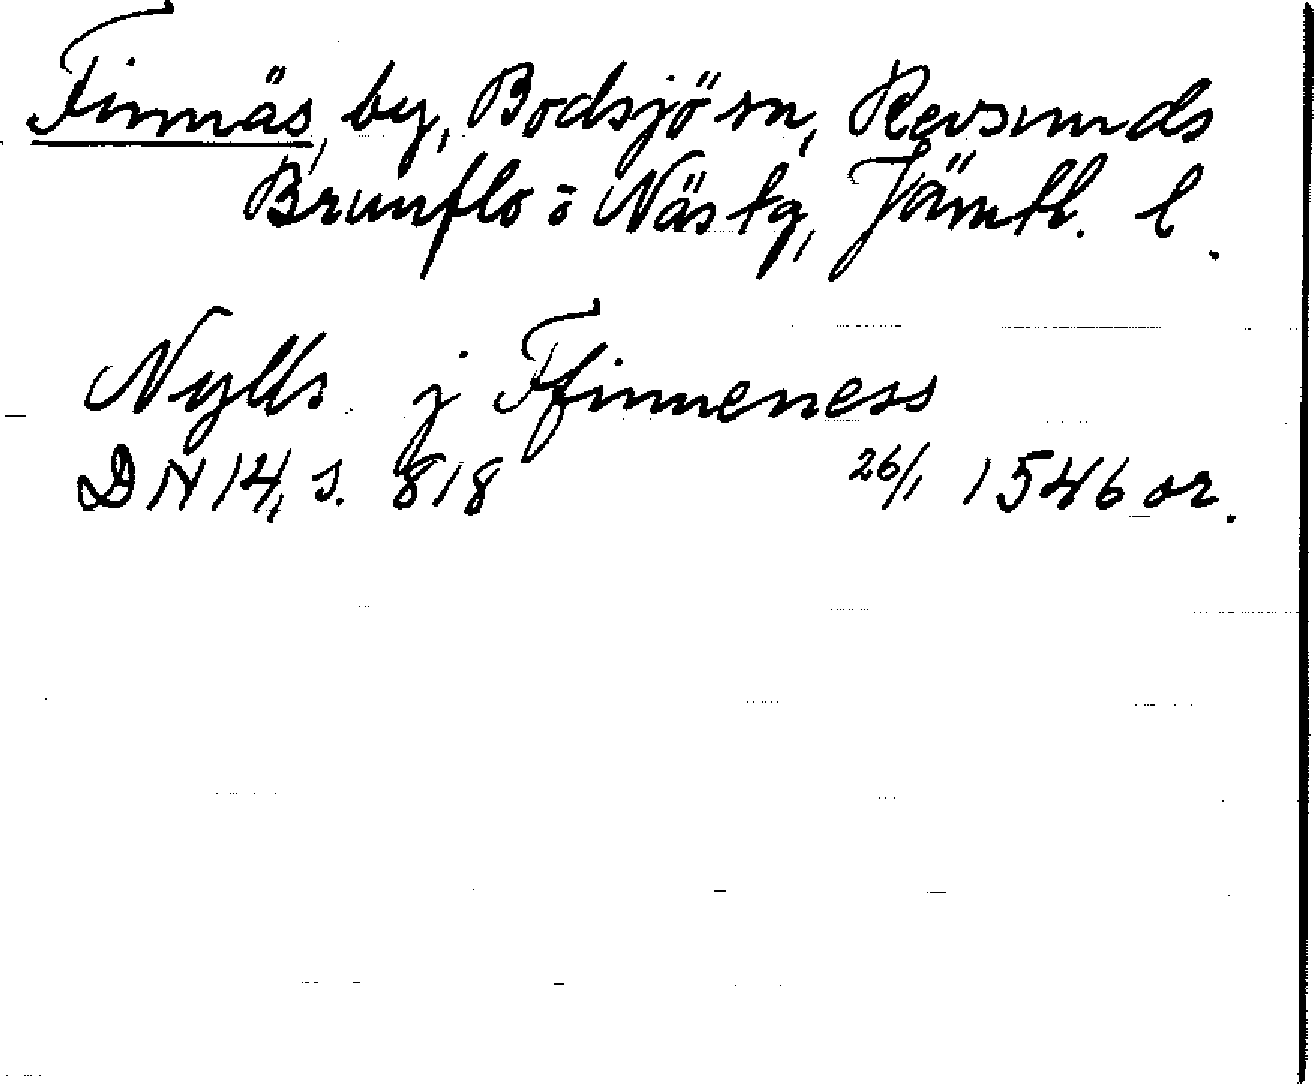 Finnäs, by, Bodsjö sn, Revsunds
Brunflo o Näs tg, Jämtl. l.
Nylls j Ffinneness
DN 14, s. 818 26/1 1546 or.